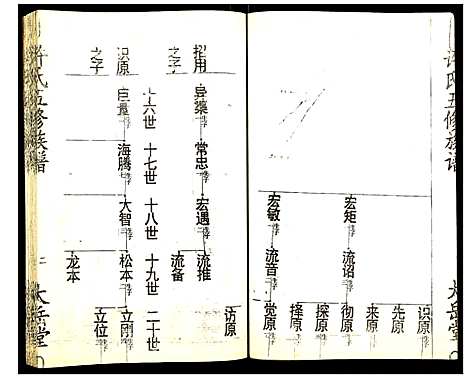 许氏五修族谱
大岳堂
宏矩
流诏
识原
先原
来原
彻原
宏敏
流音
探原
择原
觉原
访原
招用
之子
异蘖
常忠
宏遇
流推
流备
十六世
十七世
十八世
十九世
二十世
识原
之子
巨量
海腾
大智
松本
立刚
立位
龙本
许氏五修族谱
二
大岳堂